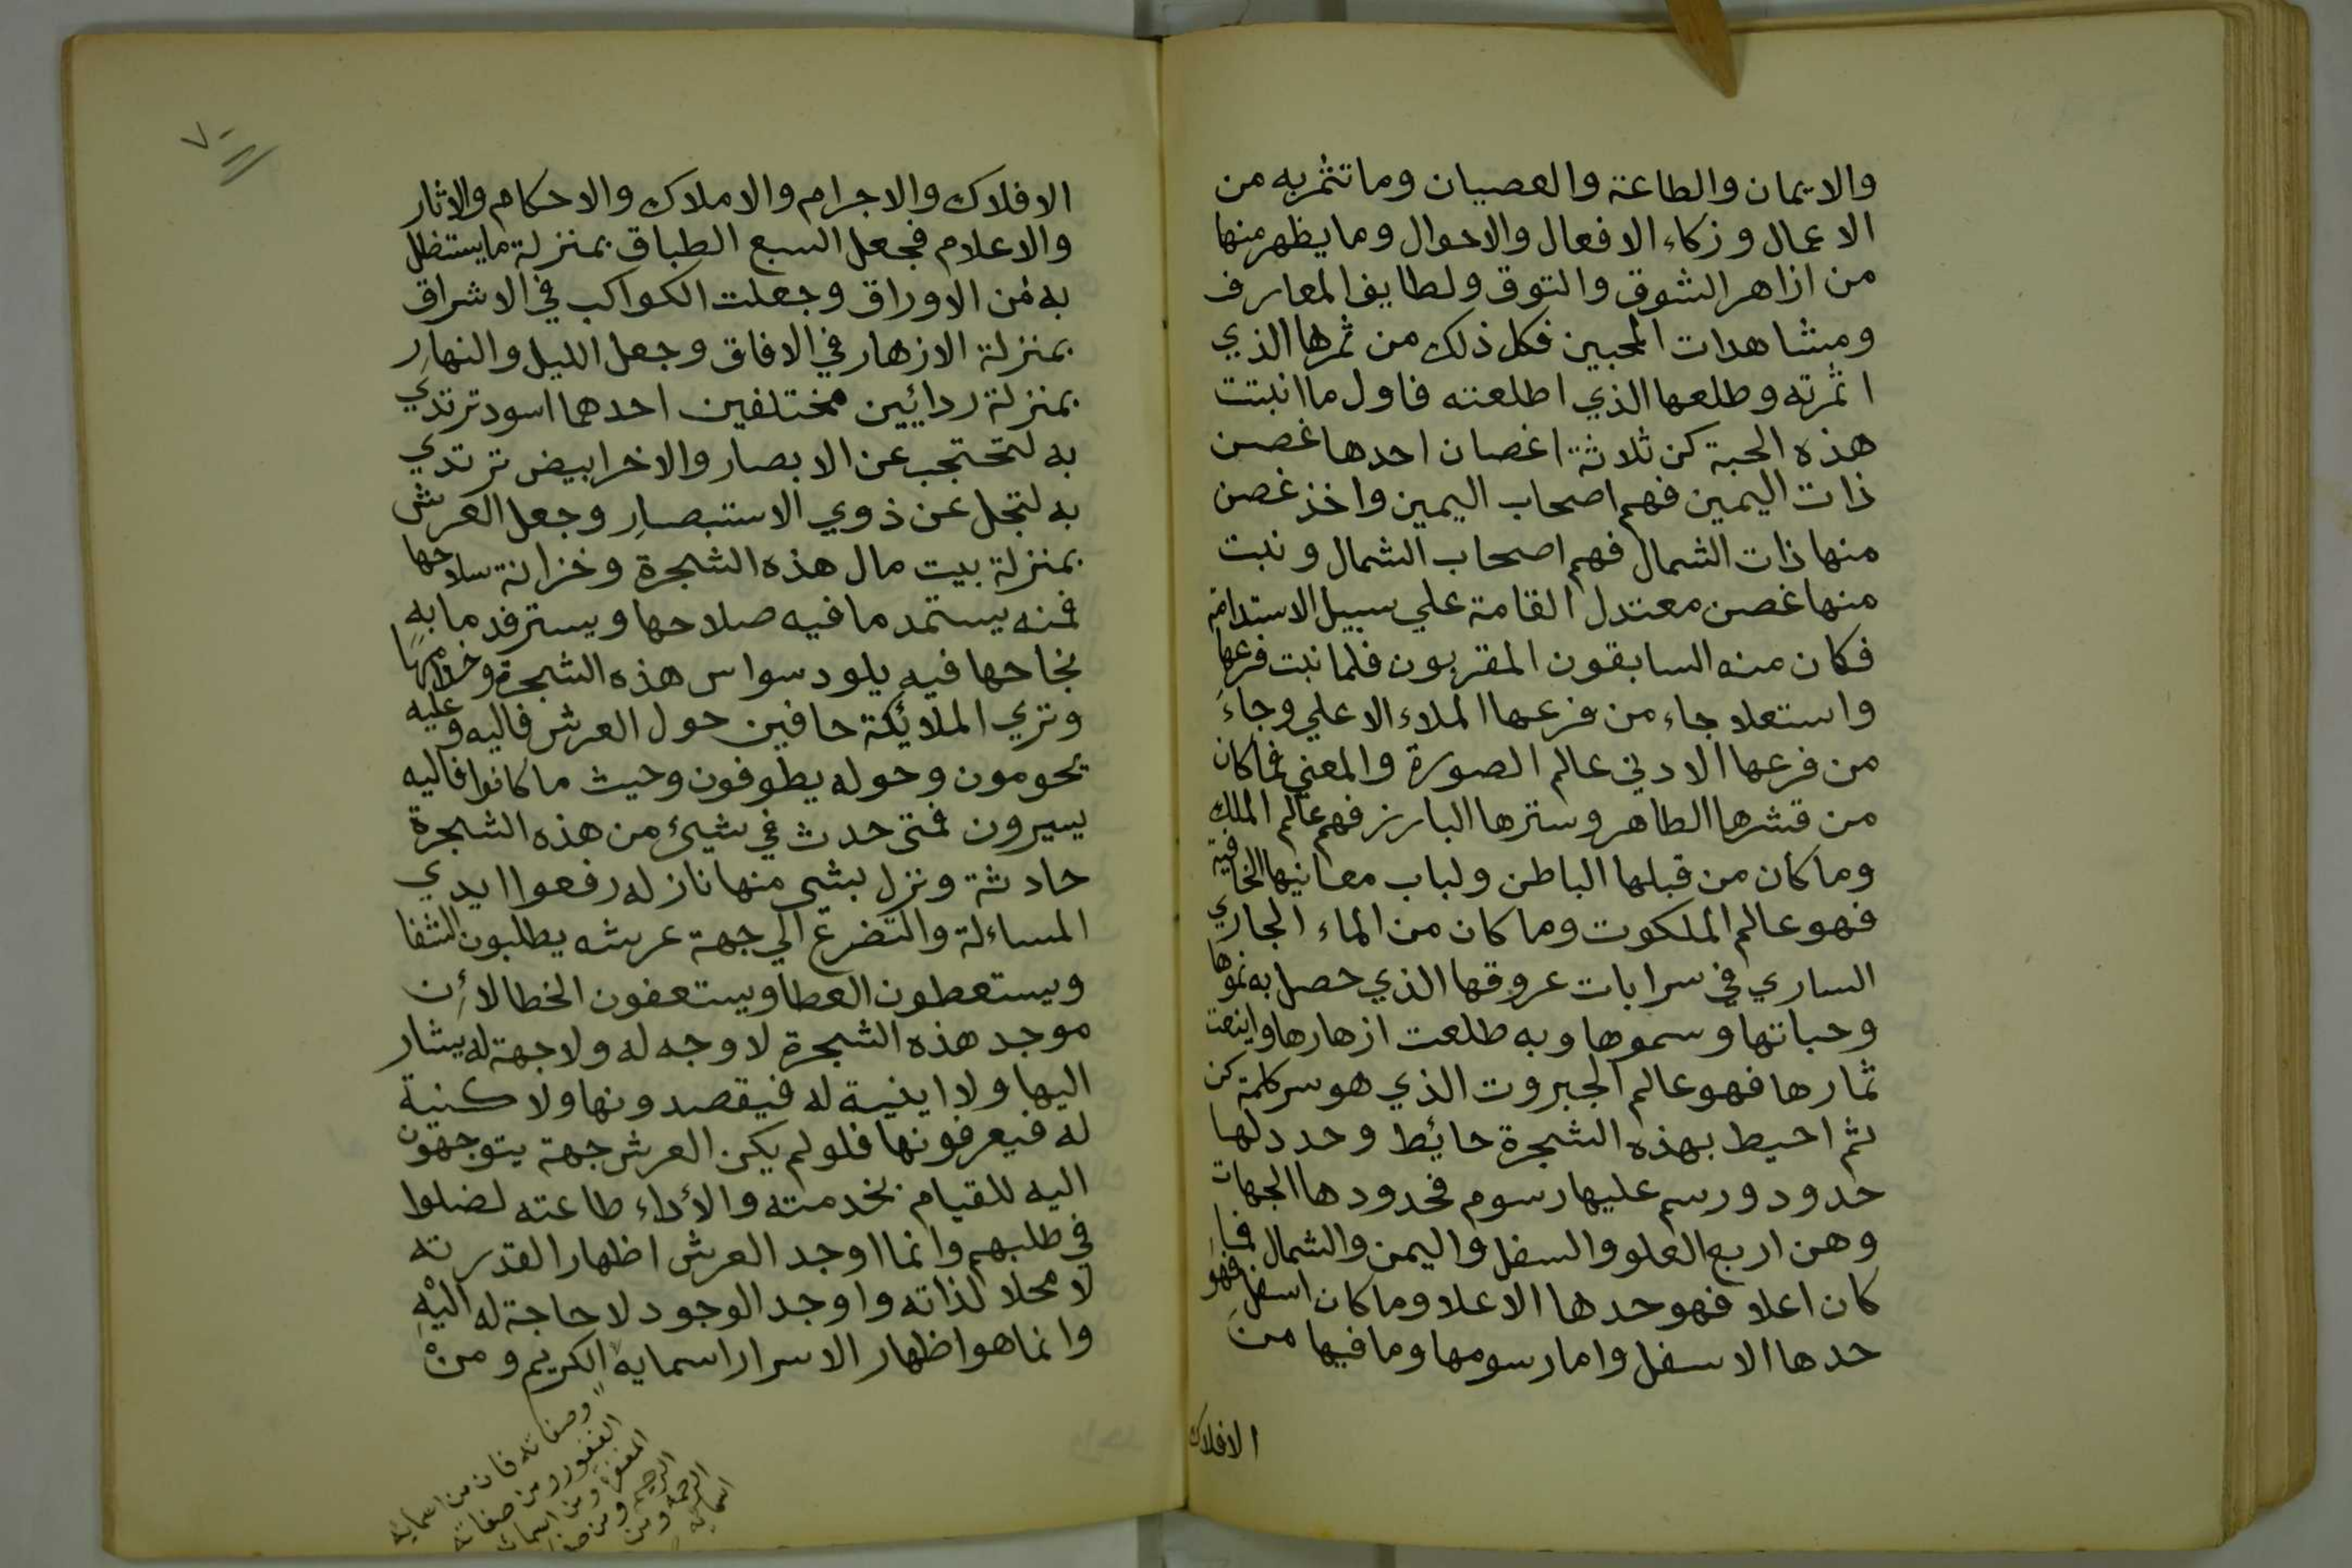 والايمان والطاعة والعصيان وما تثمر به من
الاعمال وزكاء الافعال والاحوال وما يظهر منها
من ازاهر الشوق والتوق ولطايف المعارف
ومشاهدات المحبين فكل ذلك من ثمرها الذي
اثمرته وطلعها الذي اطلعته فاول ما انبتت
هذه الحبة كن ثلاثة اغصان احدها غصن
ذات اليمين فهم اصحاب اليمين واخذ غصن
منها ذات الشمال فهم اصحاب الشمال ونبت
منها غصن معتدل القامة علي سبيل الاستدامة
فكان منه السابقون المقربون فلما نبت فرعها
واستعلا جاء من فرعها الملاء الاعلي وجاء
من فرعها الادني عالم الصورة والمعني فما كان
من قشرها الطاهر وسترها البارز فهم عالم الملك
وما كان من قبلها الباطن ولباب معانيها الخافية
فهو عالم الملكوت وما كان من الماء الجاري
الساري في سرابات عروقها الذي حصل به نموها
وحباتها وسموها وبه طلعت ازهارها واينعت
ثمارها فهو عالم الجبروت الذي هو سر كلمة كن
ثم احيط بهذه الشجرة حائيط وحدد لها
حدود ورسم عليها رسوم فحدودها الجهات
وهن اربع العلو والسفل واليمن والشمال فما
كان اعلا فهو حدها الاعلا وما كان اسفل فهو
حدها الاسفل واما رسومها وما فيها من
الافلاك
٧٠
الافلاك والاجرام والاملاك والاحكام والاثار
والاعلام فجعل السبع الطباق بمنزلة ما يستظل
به من الاوراق وجعلت الكواكب في الاشراق
بمنزلة الازهار في الافاق وجعل الليل والنهار
بمنزلة ردائيين مختلفين احدهما اسود ترتدي
به لتحتجب عن الابصار والاخر ابيض ترتدي
به لتجل عن ذوي الاستبصار وجعل العرش
بمنزلة بيت مال هذه الشجرة وخزانة سلاحها
فمنه يستمد ما فيه صلاحها ويسترفد ما به
نجاحها فيه يلود سواس هذه الشجرة وخدامها
وتري الملائيكة حافين حول العرش فاليه وعليه
يحومون وحوله يطوفون وحيث ما كانوا فاليه
يسيرون فمتى حدث في شيئ من هذه الشجرة
حادثة ونزل بشي منها نازله رفعوا ايدي
المساءلة والتضرع الي جهة عرشه يطلبون الشفا
ويستعطون العطا ويستعفون الخطا لاءن
موجد هذه الشجرة لا وجه له ولا جهة له يشار
اليها ولا اينية له فيقصدونها ولا كنية
له فيعرفونها فلو لم يكن العرش جهة يتوجهون
اليه للقيام بخدمته والأداء طاعته لضلوا
في طلبهم وانما اوجد العرش اظهارا لقدرته
لا محلا لذاته واوجد الوجود لا حاجة له اليه
وانما هو اظهار الاسرار اسمايه الكريم ومن
وصفاته فان من اسمايه
الغفور ومن صفاته
المغفرة ومن اسمائه
الرحيم ومن
الرحمة ومن
اسمايه